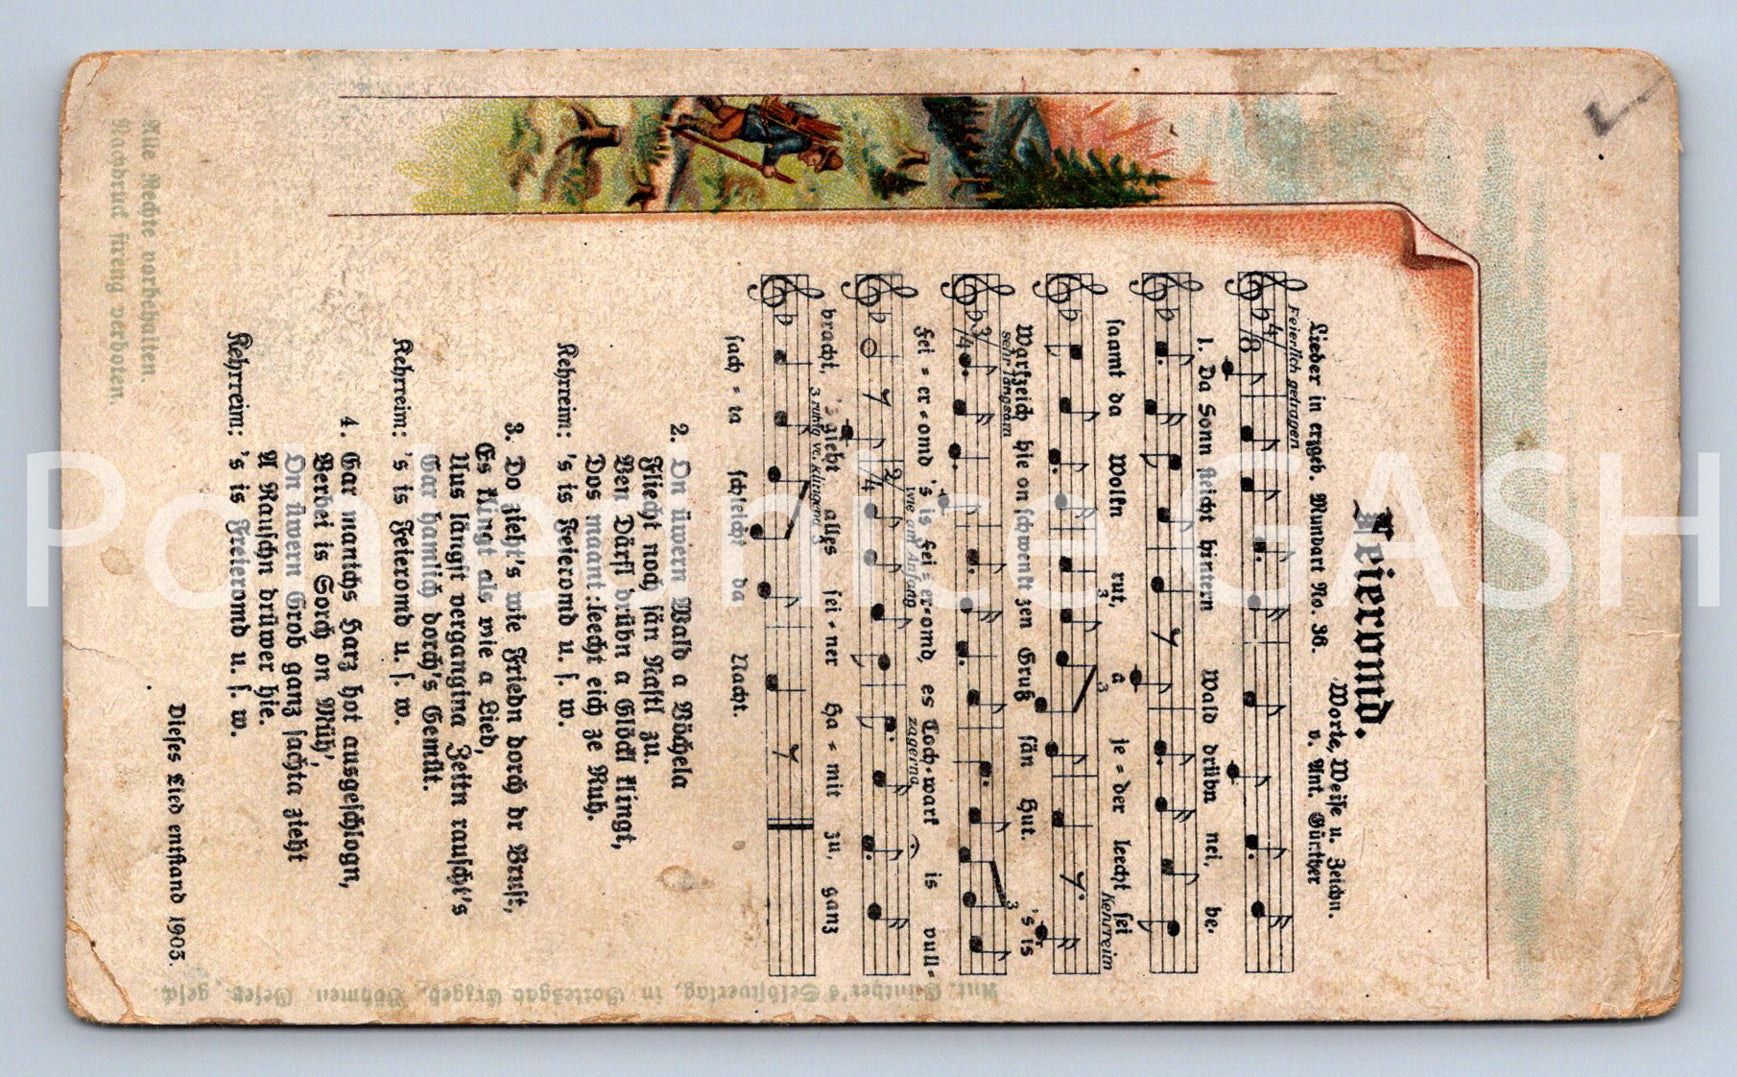 Feieromd.
Worte, Weise u. Zeichn.
v. Ant. Günther
Lieder in erzgeb. Mundart No. 36.
Feierlich getragen
1. Da Sonn steicht hintern Wald drübn nei, be-
saamt da Wolkn rut, a je=der leecht sei
Kehrreim
Warkzeich hie on schwenkt zen Gruß sän Hut. 's is
sehr langsam
Fei=er=omd 's is Fei=er=omd, es Toch=wark is vull=
wie am Anfang zögernd
bracht, 's zieht alles sei=ner Ha=mit zu, ganz
sach=ta schleicht da Nacht.
2. On üwern Wald a Vöchela
Fliecht noch sän Nastl zu.
Ven Därfl drübn a Glöckl klingt,
Dos maant: leecht eich ze Ruh.
Kehrreim: 's is Feieromd u. s. w.
3. Do zieht's wie Friedn dorch dr Brust,
Es klingt als wie a Lied,
Aus längst vergangina Zeitn rauscht's
Gar hamlich dorch's Gemüt.
Kehrreim: 's is Feieromd u. s. w.
4. Gar manichs Harz hot ausgeschlogn,
Verbei is Sorch on Müh',
On üwern Grob ganz sachta zieht
A Rauschn drüwer hie.
Kehrreim: 's is Freieromd u. s. w.
Dieses Lied entstand 1903.
Alle Rechte vorbehalten.
Nachdruck streng verboten.
Ant. Günther's Selbstverlag, in Gottesgab Erzgeb. Böhmen Oester. gesch.